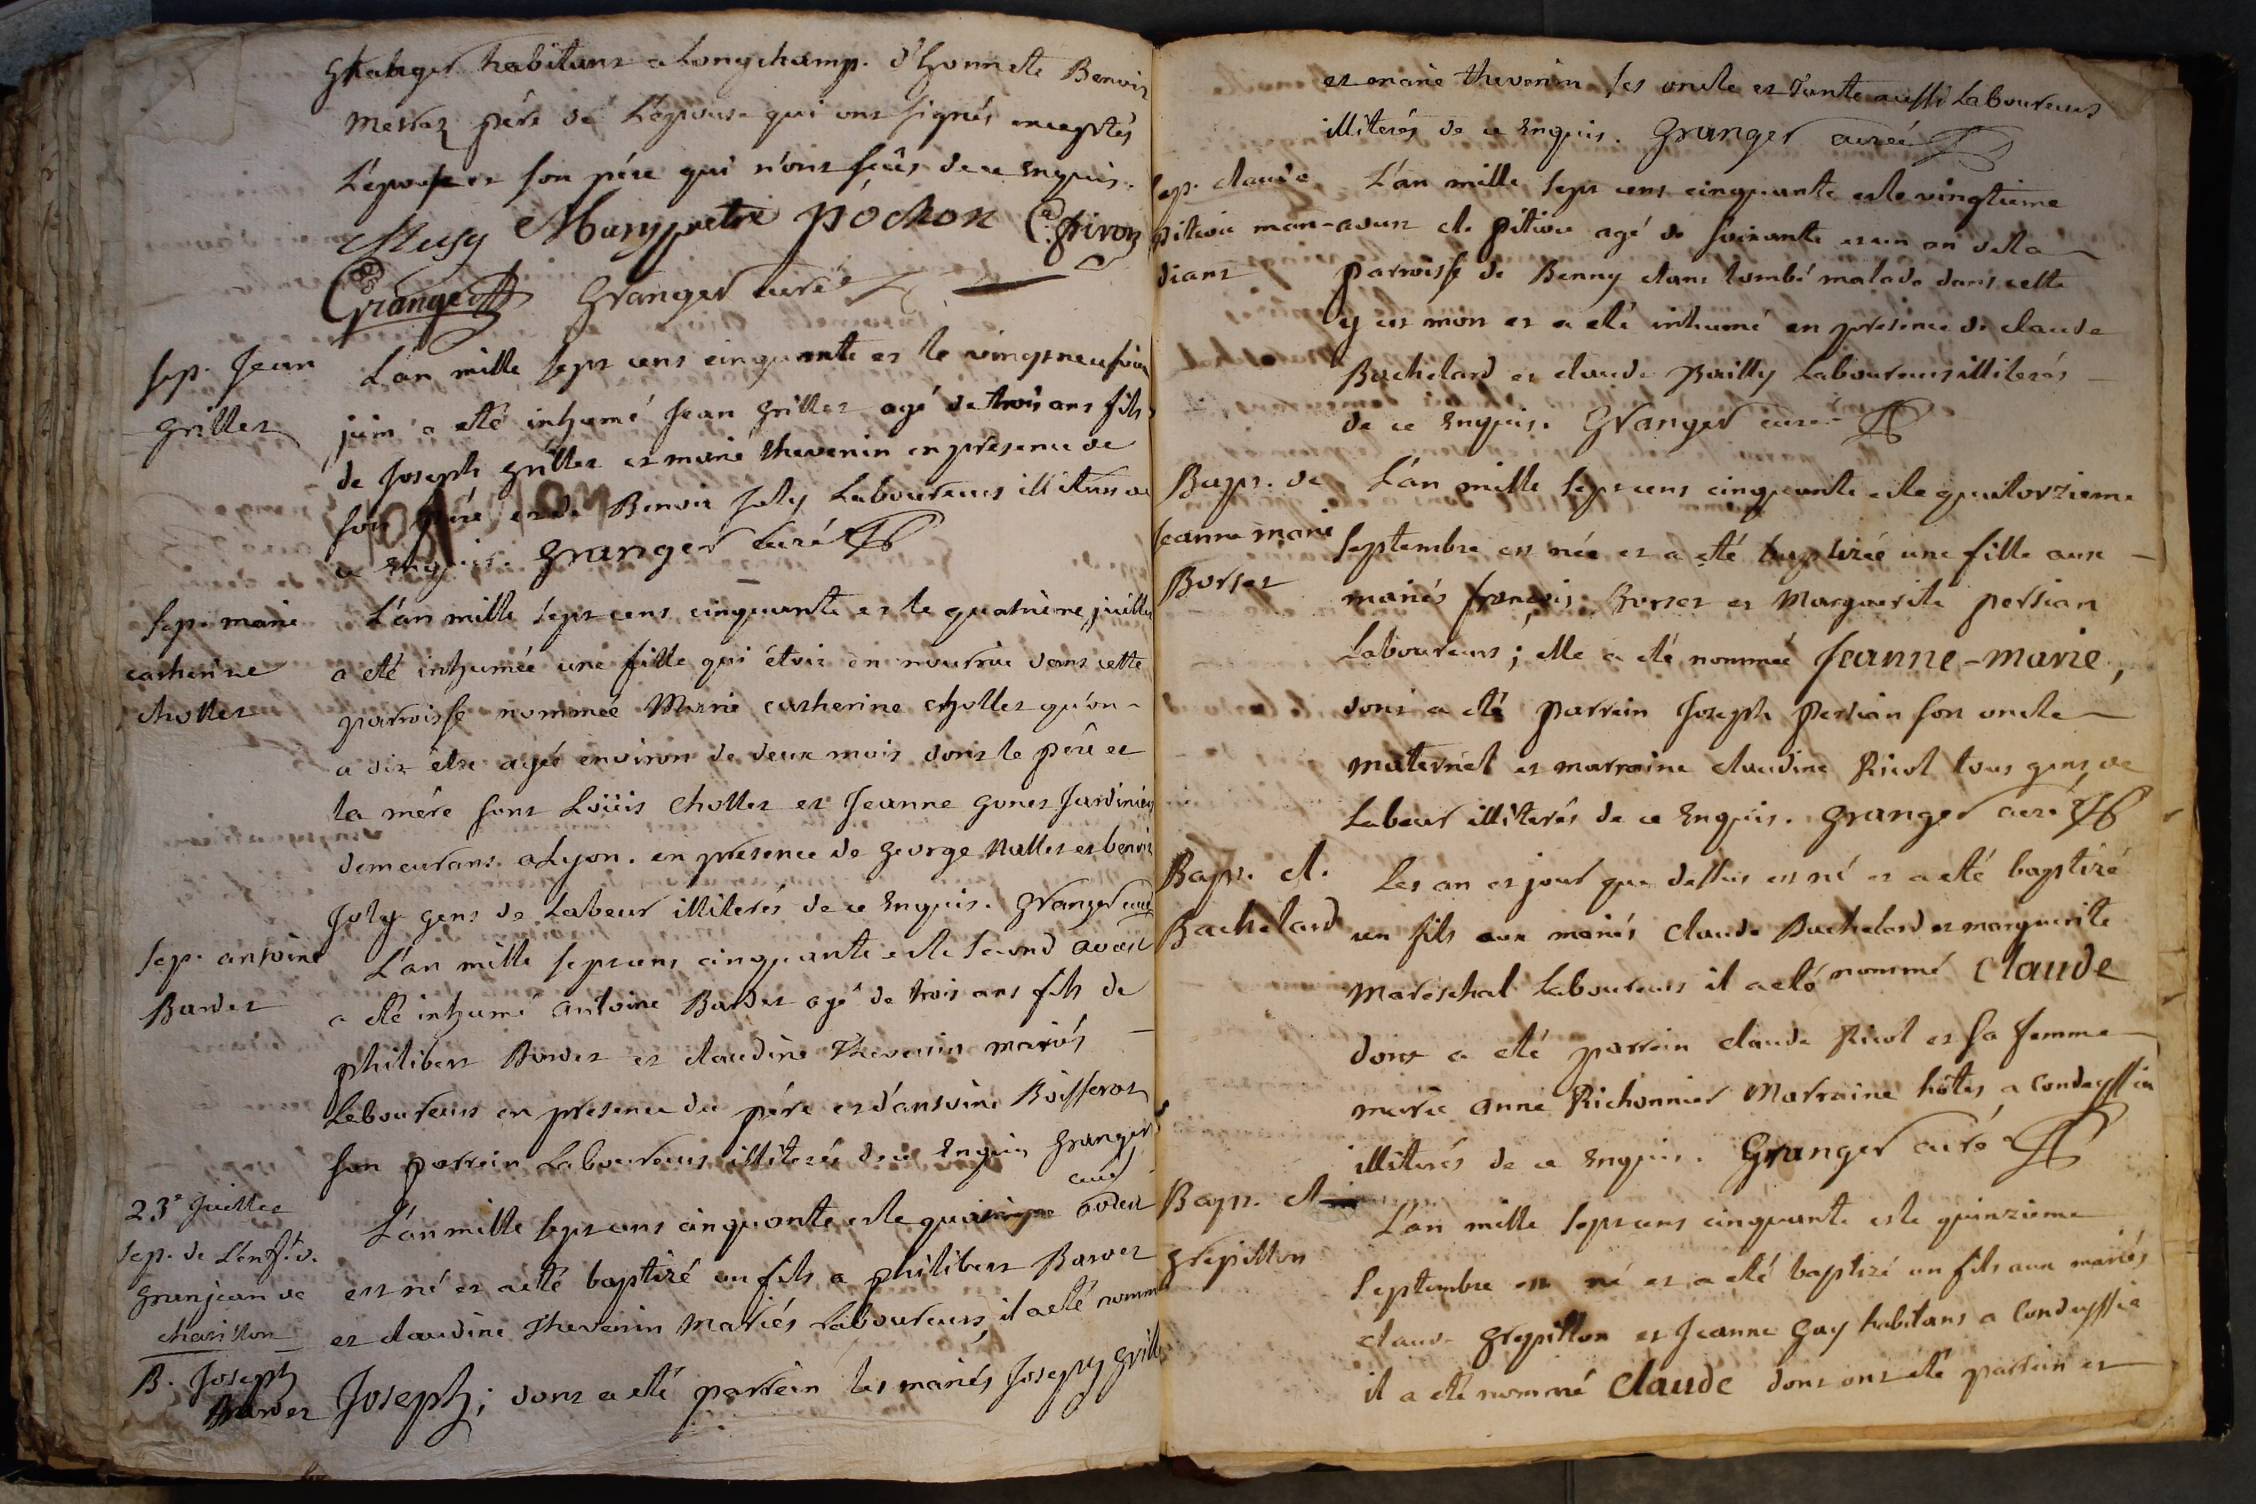 habitans a Longchamp. d'honnete Benoit
Merraz père de L'epouse qui ont signés exceptés
L'epouse et son père qui n'ont sçûs de ce Enquis.
Musy pochon Pivoz
Granger Granger curé
sep. Jean
grillet
L'an mille sept cens cinquante et le vingt neuf
juin a eté inhumé Jean grillet agé de trois ans fils
de Joseph grillet et marie thevenin en presence de
son pere et de Benoit Joly Laboureurs
ce Enquis. granger curé
sep. marie
catherine
chollet
L'an mille sept cens cinquante et le quatrieme juillet
a eté inhumée une fille qui étoit en nourrice dans cette
parroisse nommée Marie catherine chollet qu'on -
a dit etre agée environ de deux mois dont le père et
la mére sont Loüis chollet et Jeanne gonet Jardiniers
demeurans a Lyon. en presence de george Nallet et benoit
Joly gens de Labeur illiterés de ce Enquis. granger curé
sep. antoine
Bardet
L'an mille sept cens cinquante et le second aoust
a eté inhumé antoine Bardet agé de trois ans fils de
philibert Bardet et claudine Thevenin mariés -
Laboureurs en presence du pére et d'antoine Boisseroz
son parrein Laboureurs illiterés de ce Enquis granger
curé
23e Juillet
sep. de L'enft. d.
granjean de
chatillon
B. Joseph
Bardet
L'an mille sept cens cinquante et le aoust
est né et a eté baptizé un fils a philibert Bardet
et claudine Thevenin mariés Laboureurs, il a eté nommé
Joseph; dont a eté parrein les mariés Joseph grillet
et marie thevenin ses oncle et tante aussi Laboureurs
illiterés de ce Enquis. granger curé
sep. claude
pitiou men-
diant
L'an mille sept cens cinquante et le vingtieme
aoust cl. pitiou agé de soixante et un an de la
parroisse de Benny etant tombé malade dans cette
y est mort et a eté inhumé en presence de claude
Bachelard et claude Bailly Laboureurs illiterés -
de ce Enquis. Granger curé
Bapt. de
jeanne marie
Borset
L'an mille sept cens cinquante et le quatorzieme
septembre est née et a eté baptizée une fille aux -
mariés françois Borset et Marguerite persian
Laboureurs; elle a eté nommée Jeanne-marie,
dont a eté parrein Joseph persian son oncle
maternel et marraine claudine Ricol tous gens de
Labeur illiterés de ce Enquis. granger curé
Bapt. cl.
Bachelard
Les an et jour que dessus est né et a eté baptizé
un fils aux mariés claude Bachelard et marguerite
mareschal Laboureurs il a eté nommé claude
dont a eté parrein claude Ricol et sa femme
marie anne Richonnier Marraine hôtes a condeyssia
illiterés de ce Enquis. Granger curé
Bapt. cl.
grepillon
L'an mille sept cens cinquante et le quinzieme
septembre est né et a eté baptizé un fils aux mariés
claude grepillon et Jeanne gay habitans a Condeyssia
il a eté nommé claude dont ont eté parrein et